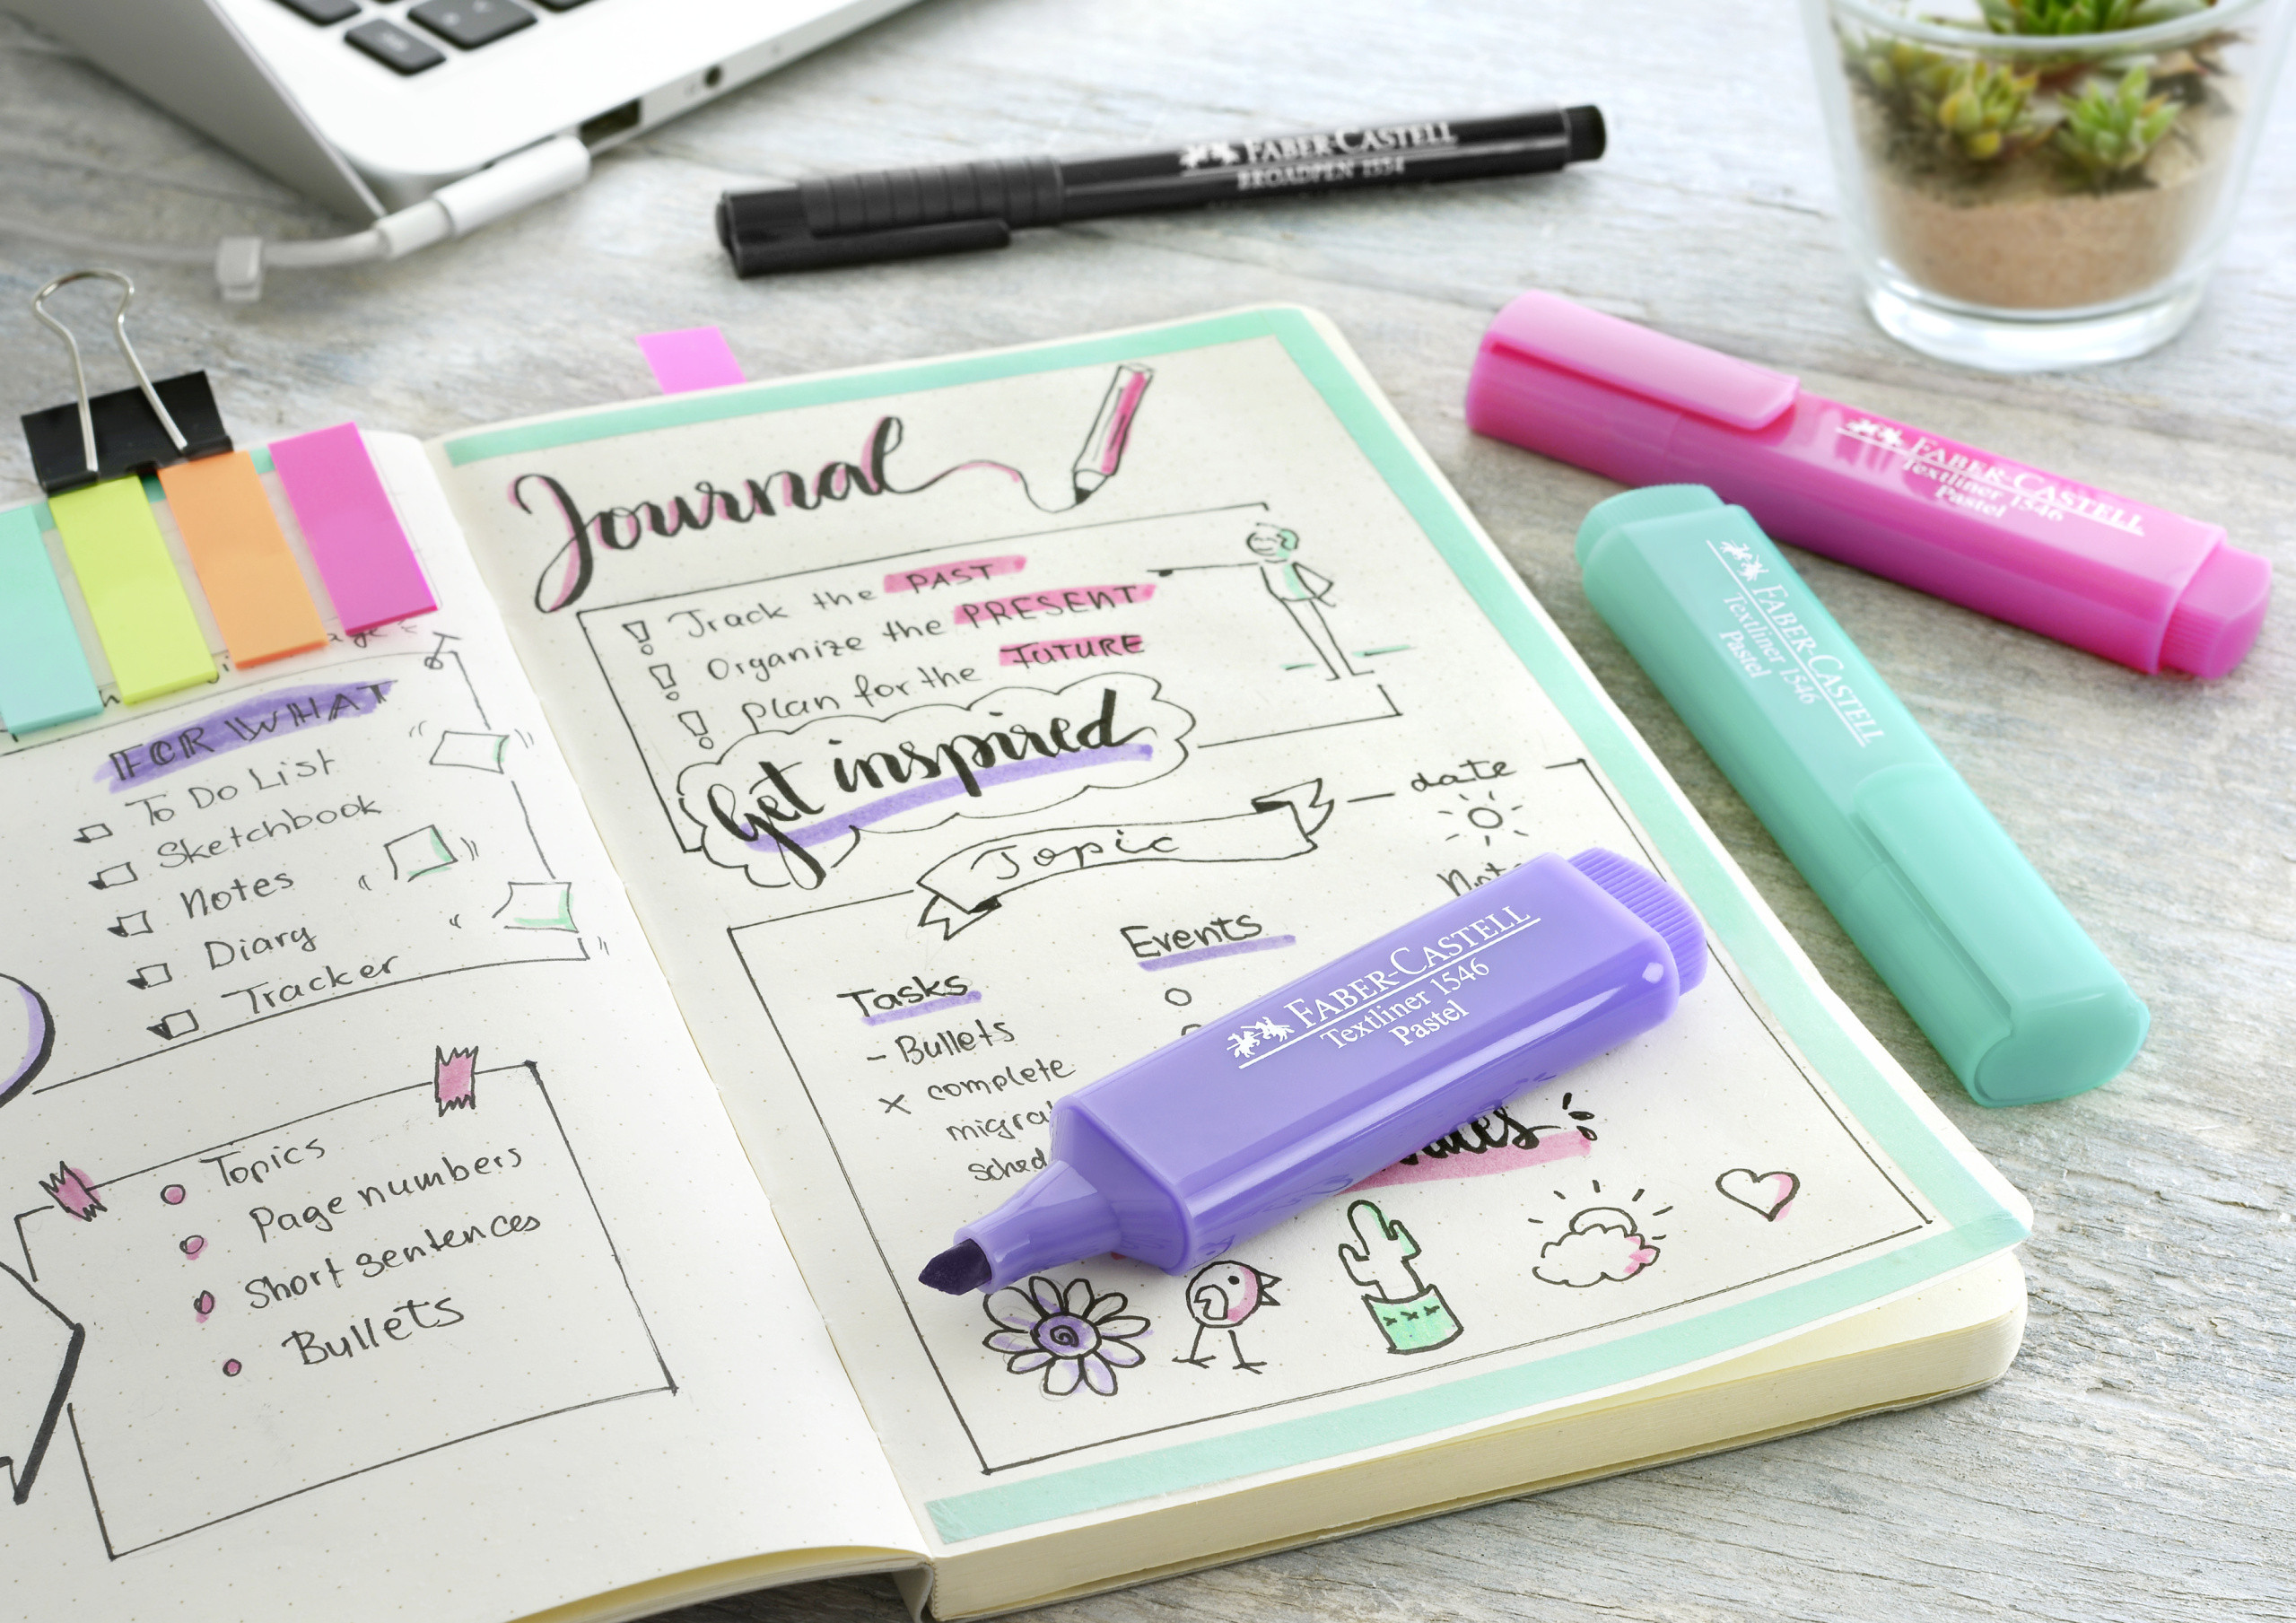 FABER-CASTELL
BROADPEN 1554
FABER-CASTELL
Textliner 1546
Pastel
FABER-CASTELL
Textliner 1546
Pastel
FABER-CASTELL
Textliner 1546
Pastel
FOR WHAT
To Do List
Sketchbook
Notes
Diary
Tracker
Topics
Page numbers
Short sentences
Bullets
Journal
Track the PAST
Organize the PRESENT
plan for the FUTURE
Get inspired
Topic
date
Events
Tasks
- Bullets
x complete